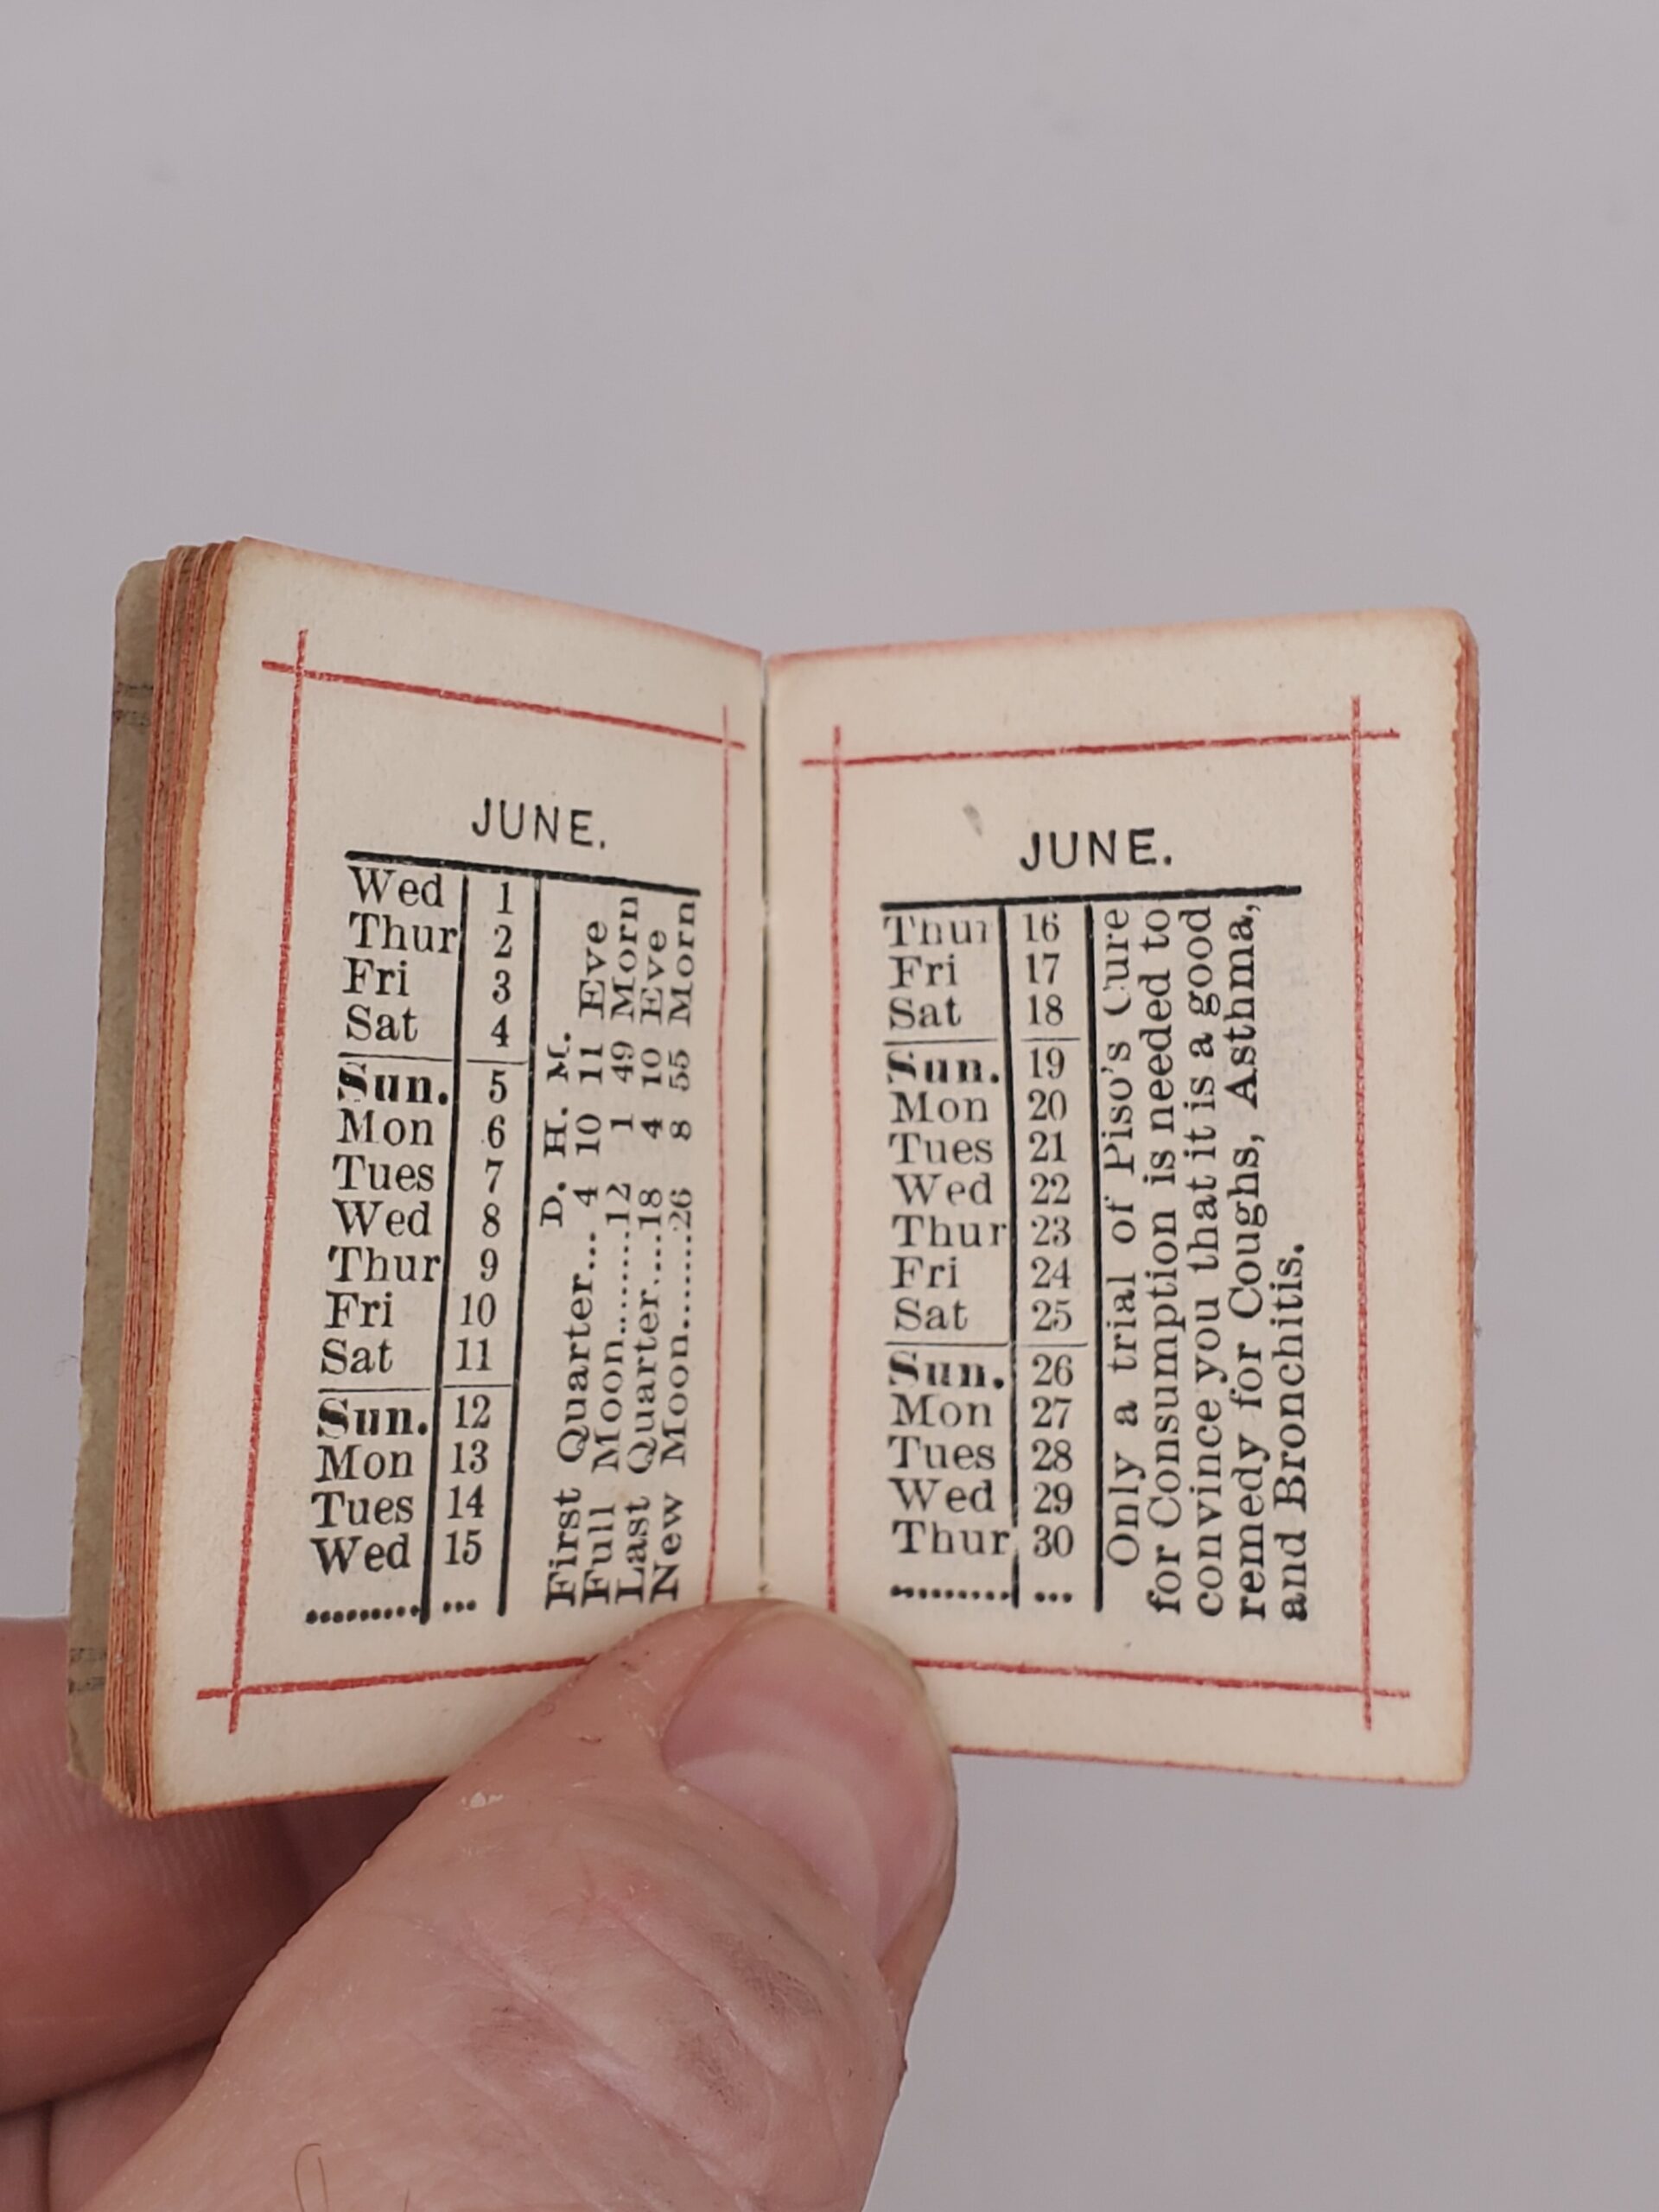 JUNE.
Wed 1
Thur 2
Fri 3
Sat 4
Sun. 5
Mon 6
Tues 7
Wed 8
Thur 9
Fri 10
Sat 11
Sun. 12
Mon 13
Tues 14
Wed 15
......... ...
D. H. M.
First Quarter... 4 10 11 Eve
Full Moon.........12 1 49 Morn
Last Quarter....18 4 10 Eve
New Moon.......26 8 55 Morn
JUNE.
Thur 16
Fri 17
Sat 18
Sun. 19
Mon 20
Tues 21
Wed 22
Thur 23
Fri 24
Sat 25
Sun. 26
Mon 27
Tues 28
Wed 29
Thur 30
.......... ...
Only a trial of Piso's Cure
for Consumption is needed to
convince you that it is a good
remedy for Coughs, Asthma,
and Bronchitis.